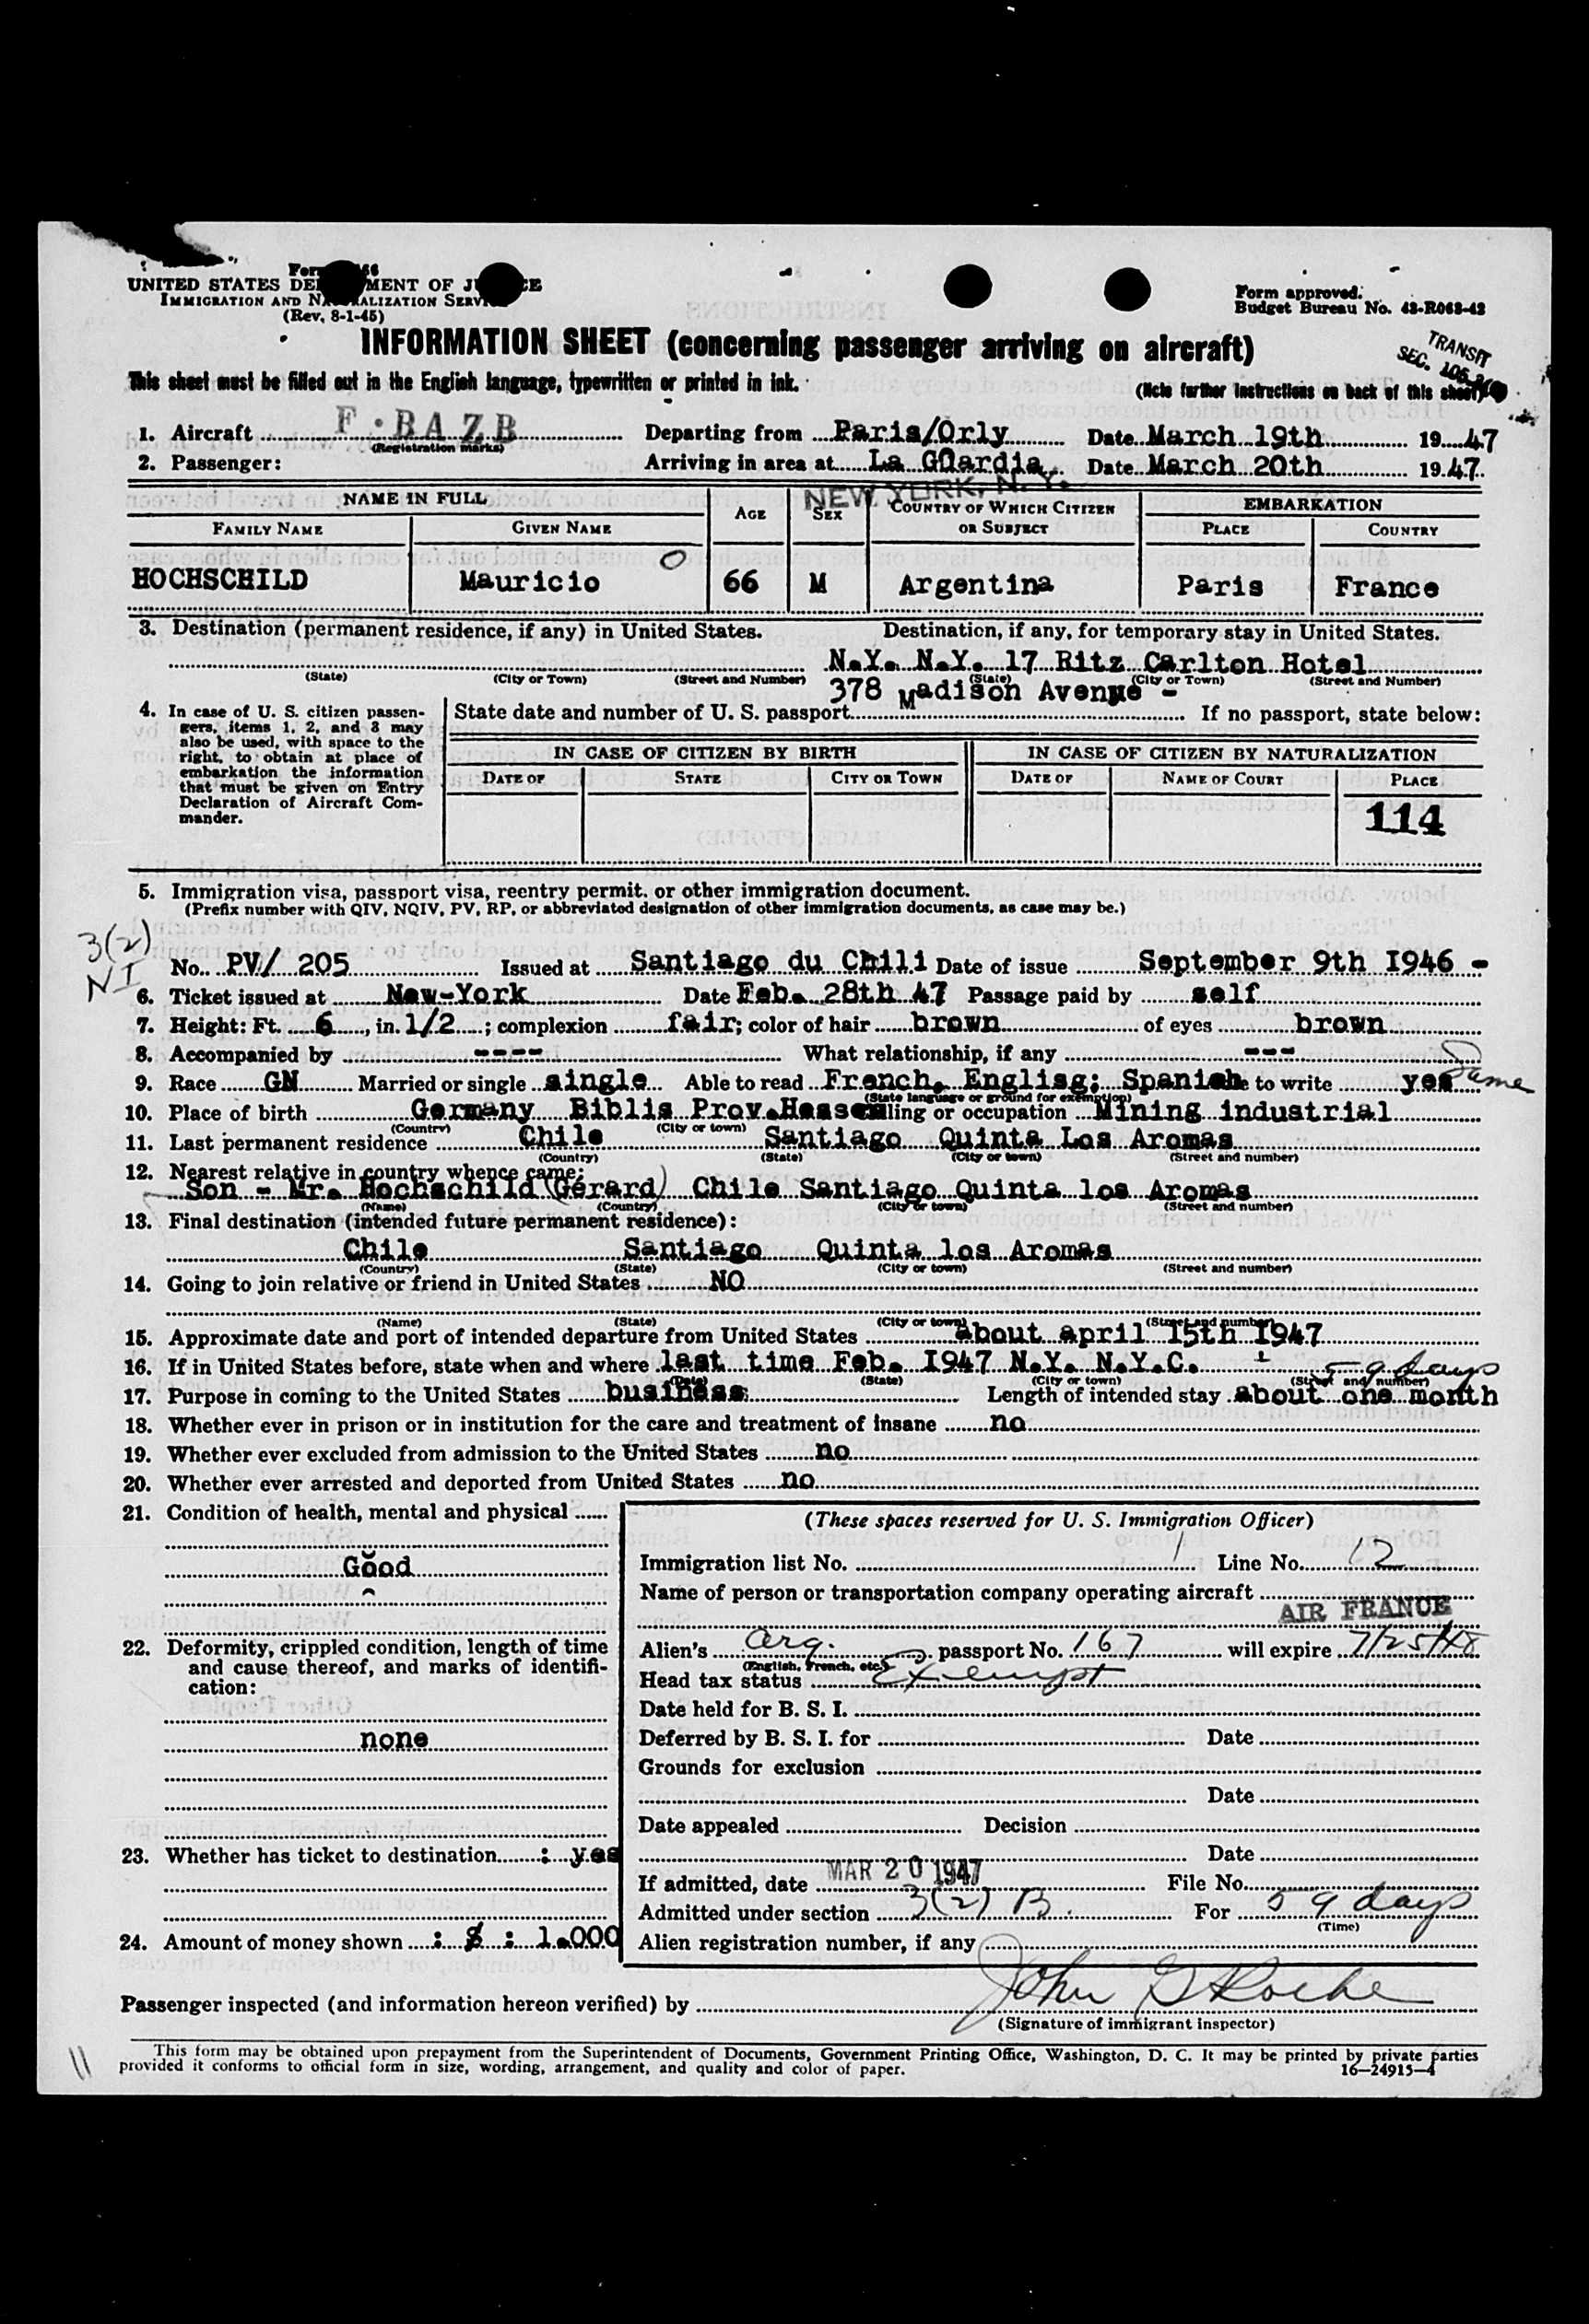 Form
UNITED STATES DE MENT OF J CE
IMMIGRATION AND NA ALIZATION SERVI
(Rev. 8-1-45)
Form approved.
Budget Bureau No. 43-R063-42
INFORMATION SHEET (concerning passenger arriving on aircraft)
TRANSIT
SEC.
This sheet must be filled out in the English language, typewritten or printed in ink.
(Note further instructions on back of this sheet)
1. Aircraft F·BAZB Departing from Paris/Orly Date March 19th 1947
(Registration marks)
2. Passenger: Arriving in area at La GUardia Date March 20th 1947
NEW YORK, N.Y.
NAME IN FULL AGE SEX COUNTRY OF WHICH CITIZEN OR SUBJECT EMBARKATION
FAMILY NAME GIVEN NAME PLACE COUNTRY
HOCHSCHILD Mauricio 66 M Argentina Paris France
3. Destination (permanent residence, if any) in United States. Destination, if any, for temporary stay in United States.
N.Y. N.Y. 17 Ritz Carlton Hotel
(State) (City or Town) (Street and Number) (State) (City or Town) (Street and Number)
378 Madison Avenue -
4. In case of U. S. citizen passen- State date and number of U. S. passport If no passport, state below:
gers, items 1, 2, and 3 may
also be used, with space to the
right, to obtain at place of
embarkation the information
that must be given on Entry
Declaration of Aircraft Com-
mander.
IN CASE OF CITIZEN BY BIRTH IN CASE OF CITIZEN BY NATURALIZATION
DATE OF STATE CITY OR TOWN DATE OF NAME OF COURT PLACE
114
5. Immigration visa, passport visa, reentry permit, or other immigration document.
(Prefix number with QIV, NQIV, PV, RP, or abbreviated designation of other immigration documents, as case may be.)
3(2)
NI
No. PV/ 205 Issued at Santiago du Chili Date of issue September 9th I946 -
6. Ticket issued at New-York Date Feb. 28th 47 Passage paid by self
7. Height: Ft. 6, in. 1/2; complexion fair; color of hair brown of eyes brown
8. Accompanied by ---- What relationship, if any ---
9. Race GN Married or single single Able to read French, Englisg; Spanish to write yes Same
(State language or ground for exemption)
10. Place of birth Germany Biblis Prov.Hessen ling or occupation Mining industrial
(Country) (City or town)
11. Last permanent residence Chile Santiago Quinta Los Aromas
(Country) (State) (City or town) (Street and number)
12. Nearest relative in country whence came:
Son - Mr. Hochschild (Gérard) Chile Santiago Quinta los Aromas
(Name) (Country) (City or town) (Street and number)
13. Final destination (intended future permanent residence):
Chile Santiago Quinta los Aromas
(Country) (State) (City or town) (Street and number)
14. Going to join relative or friend in United States NO
(Name) (State) (City or town) (Street and number)
15. Approximate date and port of intended departure from United States about april 15th I947
16. If in United States before, state when and where last time Feb. I947 N.Y. N.Y.C.
(Date) (State) (City or town) (Street and number)
59 days
17. Purpose in coming to the United States business Length of intended stay about one month
18. Whether ever in prison or in institution for the care and treatment of insane no
19. Whether ever excluded from admission to the United States no
20. Whether ever arrested and deported from United States no
21. Condition of health, mental and physical
Good
22. Deformity, crippled condition, length of time
and cause thereof, and marks of identifi-
cation:
none
23. Whether has ticket to destination : yes
24. Amount of money shown : $ : 1.000
(These spaces reserved for U. S. Immigration Officer)
Immigration list No. 1 Line No. 12
Name of person or transportation company operating aircraft
AIR FRANCE
Alien's Arg. passport No. 167 will expire 7/25/48
(English, French, etc.)
Head tax status Exempt
Date held for B. S. I.
Deferred by B. S. I. for Date
Grounds for exclusion
Date
Date appealed Decision
Date
If admitted, date MAR 20 1947 File No.
Admitted under section 3(2) B. For 59 days
(Time)
Alien registration number, if any
Passenger inspected (and information hereon verified) by John G Roche
(Signature of immigrant inspector)
11
This form may be obtained upon prepayment from the Superintendent of Documents, Government Printing Office, Washington, D. C. It may be printed by private parties
provided it conforms to official form in size, wording, arrangement, and quality and color of paper.
16—24915—4